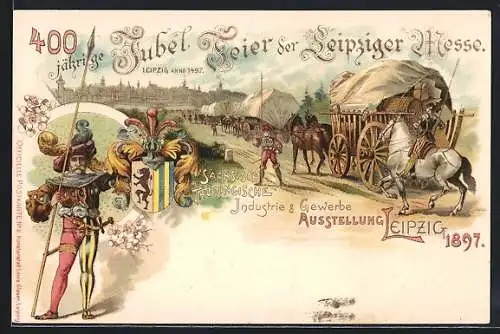 400
jährige Jubel-Feier der Leipziger Messe.
LEIPZIG ANNO 1497.
SÄCHSISCH
THÜRINGISCHE
Industrie & Gewerbe
AUSSTELLUNG
LEIPZIG
1897.
OFFICIELLE POSTKARTE